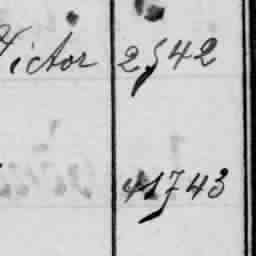 Victor 2542
41743